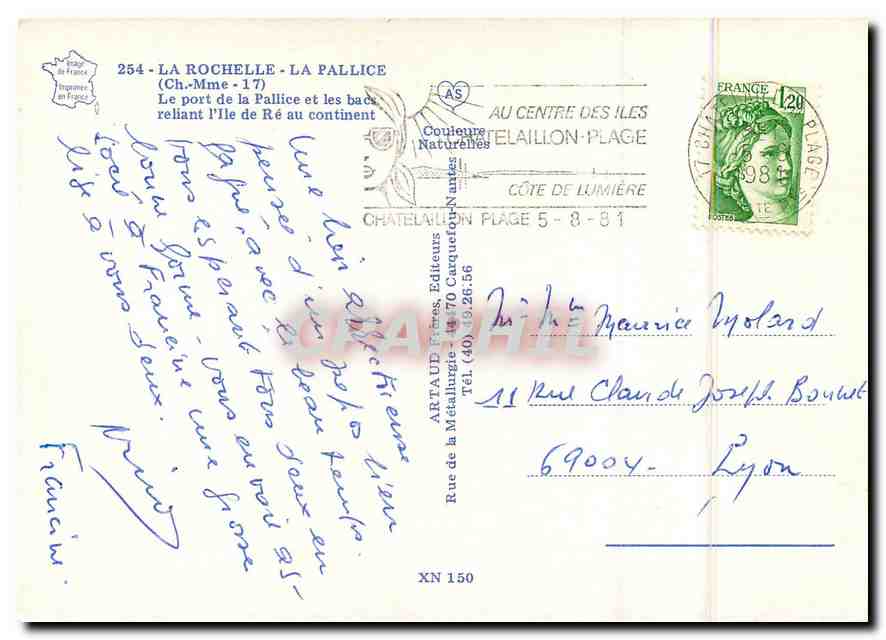 Image
de France
Imprimée
en France
254 - LA ROCHELLE - LA PALLICE
(Ch.-Mme - 17)
Le port de la Pallice et les bacs
reliant l'Ile de Ré au continent
AS
Couleurs
Naturelles
AU CENTRE DES ILES
CHATELAILLON-PLAGE
CÔTE DE LUMIÈRE
CHATELAILLON PLAGE 5-8-81
FRANCE 1,20
POSTES
17 CHA PLAGE
1981
Une bien affectueuse
pensée d'un repos bien
gagné, avec le beau temps.
Tous espérant tous deux en
bonne forme - vous envoie as-
socié à Francine une grosse
bise à vous deux.
Francine.
ARTAUD Frères, Editeurs
Rue de la Métallurgie - 44470 Carquefou-Nantes
Tél. (40) 49.26.56
CPAPHIL
Mr Mme Maurice Molard
11 Rue Claude Joseph Bonnet
69004 - Lyon
XN 150